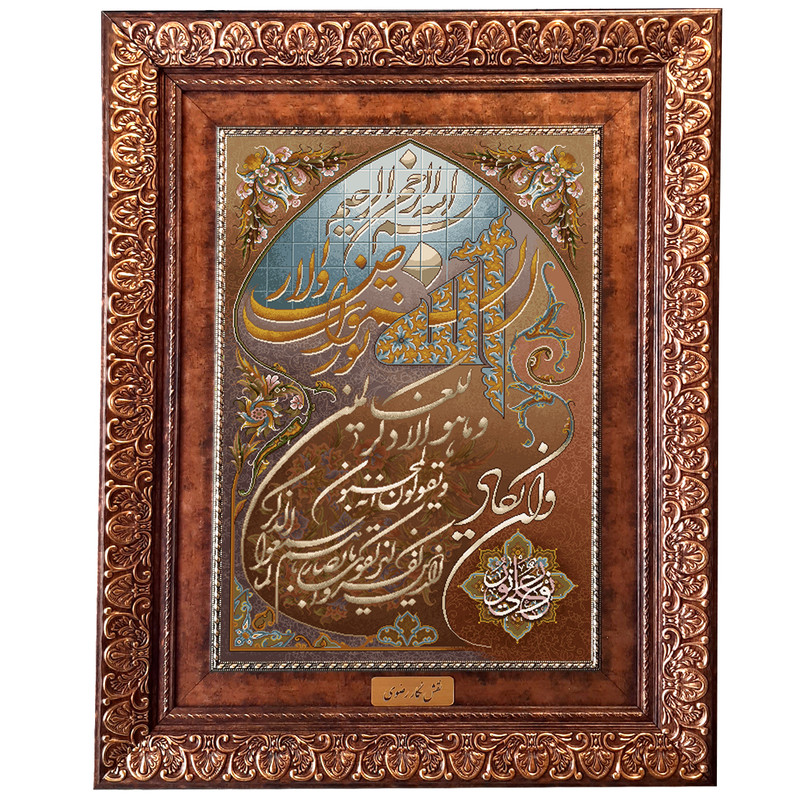 بسم الله الرحمن الرحیم
الله نور السموات والارض
وان یکاد
الذین کفروا لیزلقونک بابصارهم لما سمعوا الذکر
ویقولون انه لمجنون
وما هو الا ذکر للعالمین
نور علی نور
نقش نگار رضوی